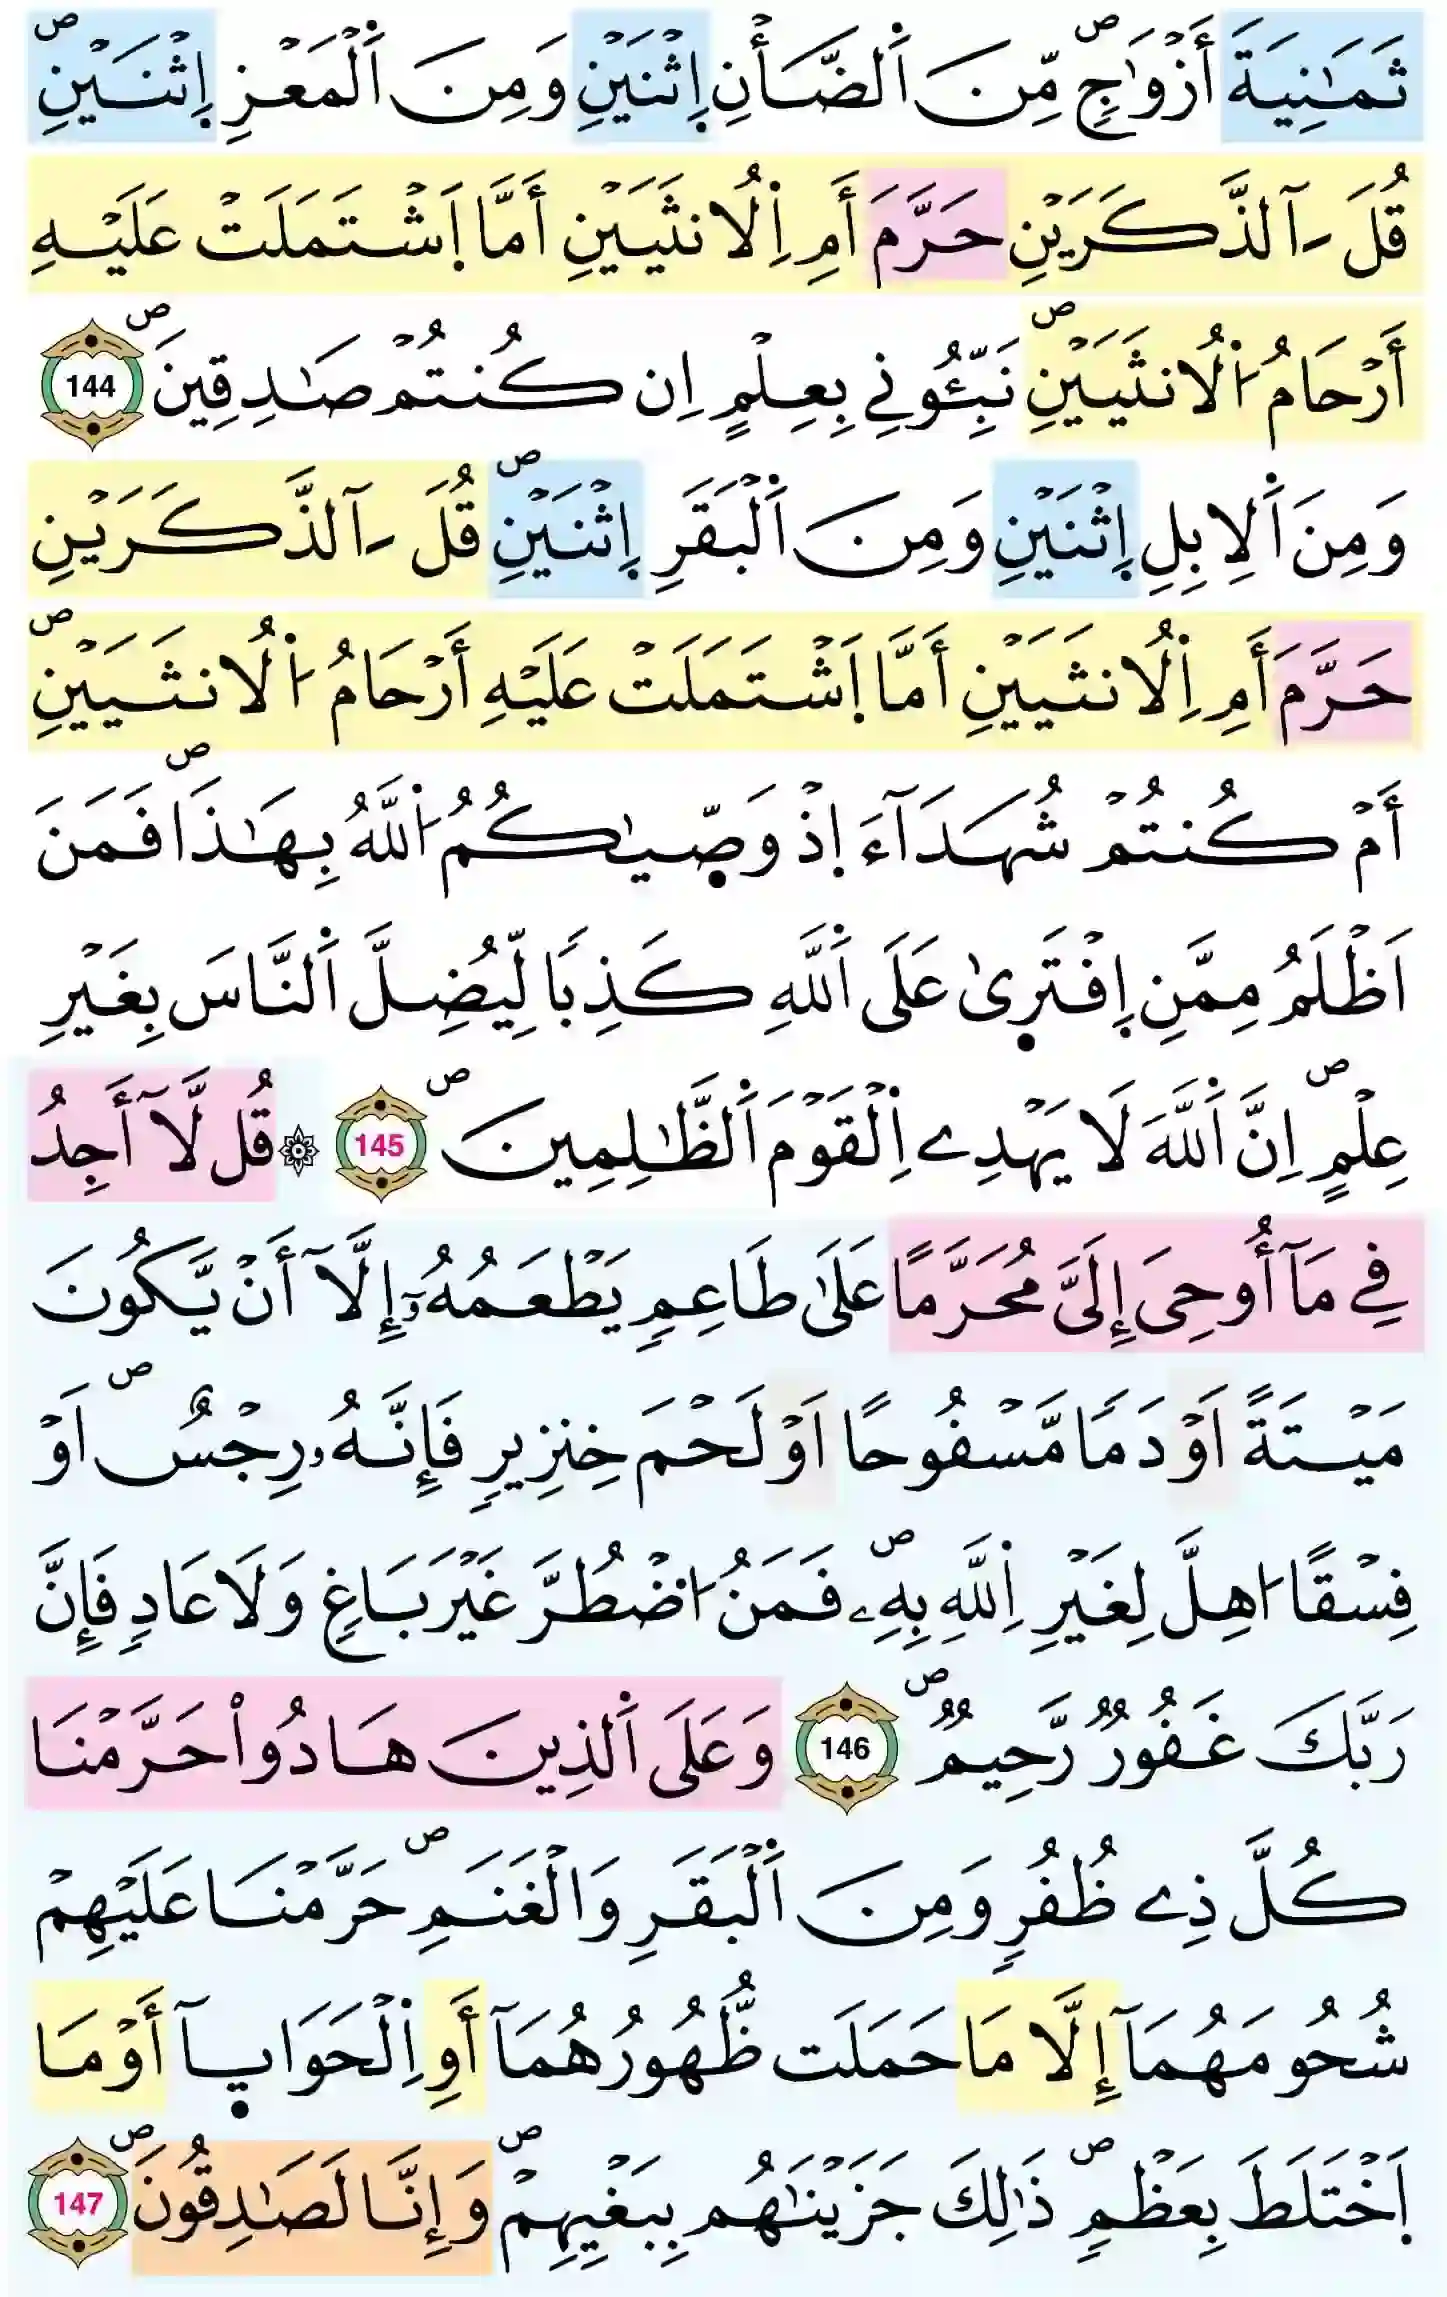 ثَمَٰنِيَةَ أَزْوَٰجٖ مِّنَ اَ۬لضَّأْنِ اِ۪ثْنَيْنِ وَمِنَ اَ۬لْمَعْزِ اِ۪ثْنَيْنِۖ
قُلَ ـٰٓالذَّكَرَيْنِ حَرَّمَ أَمِ اِ۬لُانثَيَيْنِ أَمَّا اَ۪شْتَمَلَتْ عَلَيْهِ
أَرْحَامُ اُ۬لُانثَيَيْنِۖ نَبِّـُٔونِے بِعِلْمٍ اِن كُنتُمْ صَٰدِقِينَۖ 144
وَمِنَ اَ۬لِابِلِ اِ۪ثْنَيْنِ وَمِنَ اَ۬لْبَقَرِ اِ۪ثْنَيْنِۖ قُلَ ـٰٓالذَّكَرَيْنِ
حَرَّمَ أَمِ اِ۬لُانثَيَيْنِ أَمَّا اَ۪شْتَمَلَتْ عَلَيْهِ أَرْحَامُ اُ۬لُانثَيَيْنِۖ
أَمْ كُنتُمْ شُهَدَآءَ اِ۪ذْ وَصّ۪يٰكُمُ اُ۬للَّهُ بِهَٰذَاۖ فَمَنَ
اَظْلَمُ مِمَّنِ اِ۪فْتَر۪يٰ عَلَي اَ۬للَّهِ كَذِباٗ لِّيُضِلَّ اَ۬لنَّاسَ بِغَيْرِ
عِلْمٍۖ اِنَّ اَ۬للَّهَ لَا يَهْدِے اِ۬لْقَوْمَ اَ۬لظَّٰلِمِينَۖ 145 ۞ قُل لَّآ أَجِدُ
فِے مَآ أُوحِيَ إِلَيَّ مُحَرَّماً عَلَيٰ طَاعِمٖ يَطْعَمُهُۥٓ إِلَّآ أَنْ يَّكُونَ
مَيْتَةً اَوْ دَماٗ مَّسْفُوحاً اَوْ لَحْمَ خِنزِيرٖ فَإِنَّهُۥ رِجْسٌۖ اَوْ
فِسْقاً اُهِلَّ لِغَيْرِ اِ۬للَّهِ بِهِۦۖ فَمَنُ اُ۟ضْطُرَّ غَيْرَ بَاغٖ وَلَا عَادٖ فَإِنَّ
رَبَّكَ غَفُورٞ رَّحِيمٞۖ 146 وَعَلَي اَ۬لذِينَ هَادُواْ حَرَّمْنَا
كُلَّ ذِے ظُفُرٖ وَمِنَ اَ۬لْبَقَرِ وَالْغَنَمِۖ حَرَّمْنَا عَلَيْهِمْ
شُحُومَهُمَآ إِلَّا مَا حَمَلَت ظُّهُورُهُمَآ أَوِ اِ۬لْحَوَاي۪آ أَوْ مَا
اَ۪خْتَلَطَ بِعَظْمٖۖ ذَٰلِكَ جَزَيْنَٰهُم بِبَغْيِهِمْۖ وَإِنَّا لَصَٰدِقُونَۖ 147